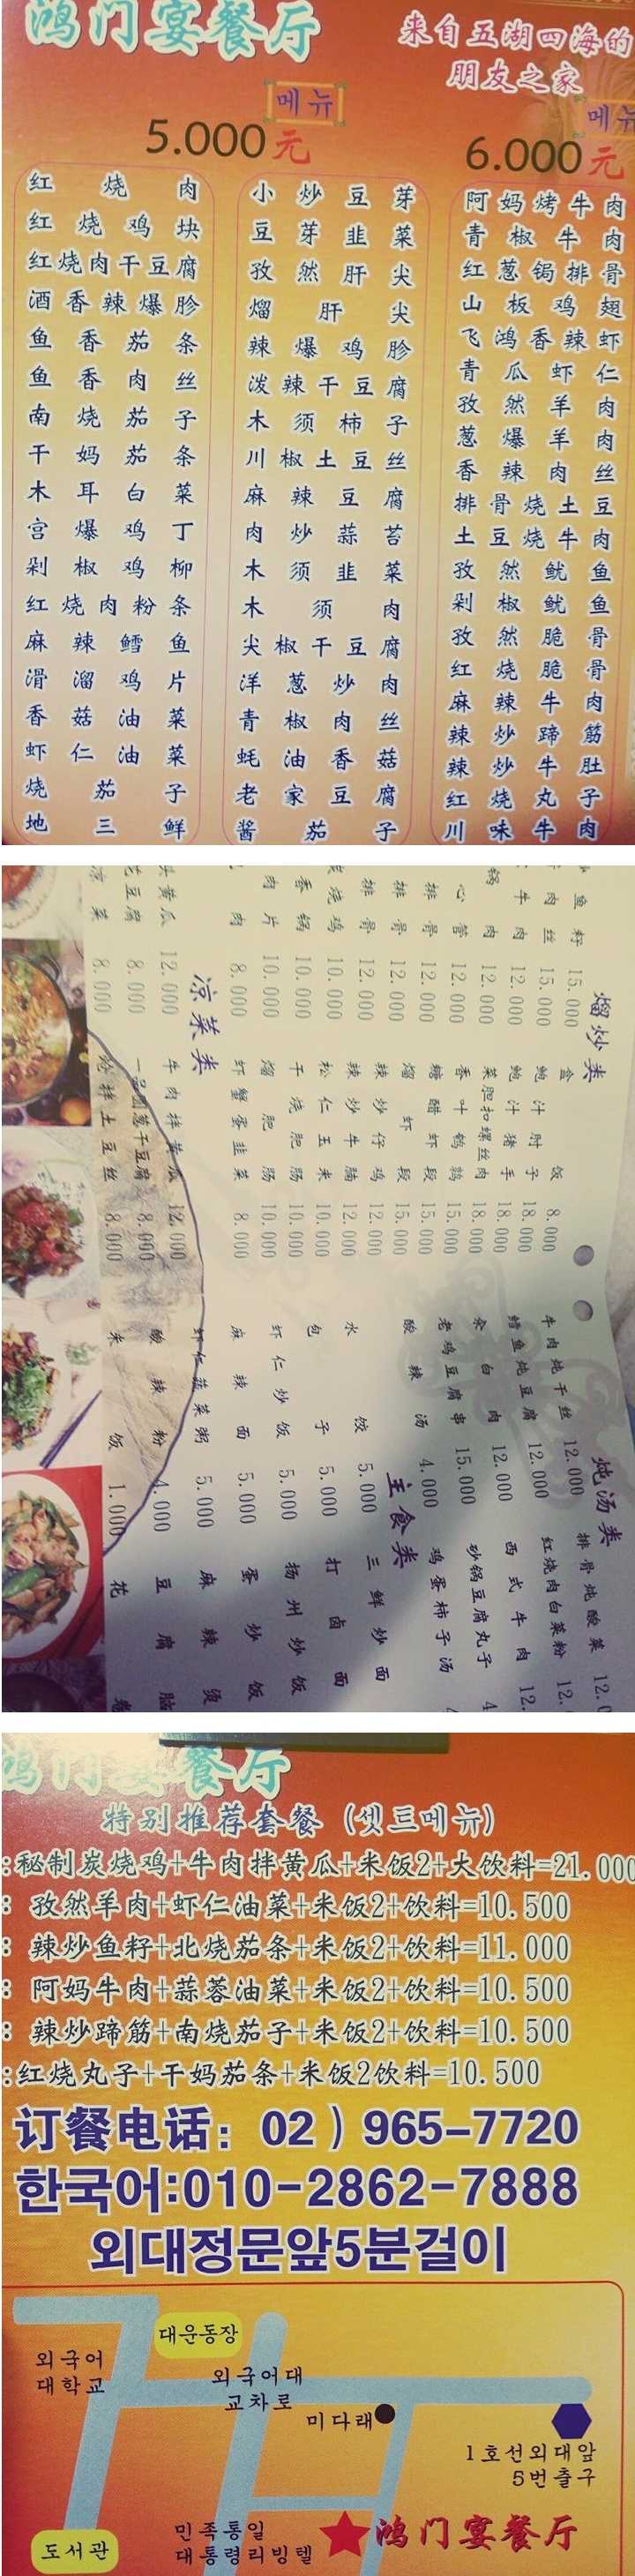 鸿门宴餐厅
来自五湖四海的
朋友之家
메뉴
5.000元
메뉴
6.000元
红烧肉
红烧鸡块
红烧肉干豆腐
酒香辣爆胗
鱼香茄条
鱼香肉丝
南烧茄子
干妈茄条
木耳白菜
宫爆鸡丁
剁椒鸡柳
红烧肉粉条
麻辣鳕鱼
滑溜鸡片
香菇油菜
虾仁油菜
烧茄子
地三鲜
小炒豆芽
豆芽韭菜
孜然肝尖
熘肝尖
辣爆鸡胗
泼辣干豆腐
木须柿子
川椒土豆丝
麻辣豆腐
肉炒蒜苔
木须韭菜
木须肉
尖椒干豆腐
洋葱炒肉
青椒肉丝
蚝油香菇
老家豆腐
酱茄子
阿妈烤牛肉
青椒牛肉
红葱锔排骨
山板鸡翅
飞鸿香辣虾
青瓜虾仁
孜然羊肉
葱爆羊肉
香辣肉丝
排骨烧土豆
土豆烧牛肉
孜然鱿鱼
剁椒鱿鱼
孜然脆骨
红烧脆骨
麻辣牛肉
辣炒蹄筋
辣炒牛肚
红烧丸子
川味牛肉
熘炒类
鱼籽 15.000
肉丝 15.000
牛肉 12.000
锅肉 12.000
心管 12.000
排骨 12.000
排骨 12.000
排骨 12.000
烧鸡 10.000
香锅 10.000
肉片 10.000
肉 8.000
盒饭 8.000
鲍汁肘子 18.000
鲍汁猪手 18.000
菜胆扣螺丝肉 18.000
香叶鹌鹑 15.000
糖醋虾段 15.000
熘虾段 15.000
辣炒仔鸡 12.000
辣炒牛腩 12.000
松仁玉米 10.000
干烧肥肠 10.000
熘肥肠 10.000
虾蟹蛋韭菜 8.000
凉菜类
黄瓜 12.000
豆腐 8.000
凉菜 8.000
牛肉拌黄瓜 12.000
葱干豆腐 8.000
炝拌土豆丝 8.000
炖汤类
牛肉炖干丝 12.000
鳕鱼炖豆腐 12.000
汆白肉 12.000
老鸡豆腐串 15.000
酸辣汤 4.000
排骨炖酸菜 12.0
红烧肉白菜粉 12.
西式牛肉 12.
砂锅豆腐丸子 4
鸡蛋柿子汤 4
主食类
水饺 5.000
包子 5.000
虾仁炒饭 5.000
麻辣面 5.000
虾仁蔬菜粥 5.000
酸辣粉 4.000
米饭 1.000
三鲜炒面
打卤面
扬州炒饭
蛋炒饭
麻辣烫
豆腐脑
花卷
鸿门宴餐厅
特别推荐套餐 (셋트메뉴)
:秘制炭烧鸡+牛肉拌黄瓜+米饭2+大饮料=21.000
: 孜然羊肉+虾仁油菜+米饭2+饮料=10.500
: 辣炒鱼籽+北烧茄条+米饭2+饮料=11.000
: 阿妈牛肉+蒜蓉油菜+米饭2+饮料=10.500
: 辣炒蹄筋+南烧茄子+米饭2+饮料=10.500
:红烧丸子+干妈茄条+米饭2饮料=10.500
订餐电话: 02) 965-7720
한국어:010-2862-7888
외대정문앞5분걸이
대운동장
외국어
대학교
외국어대
교차로
미다래
1호선외대앞
5번출구
민족통일
대통령리빙텔
도서관
鸿门宴餐厅